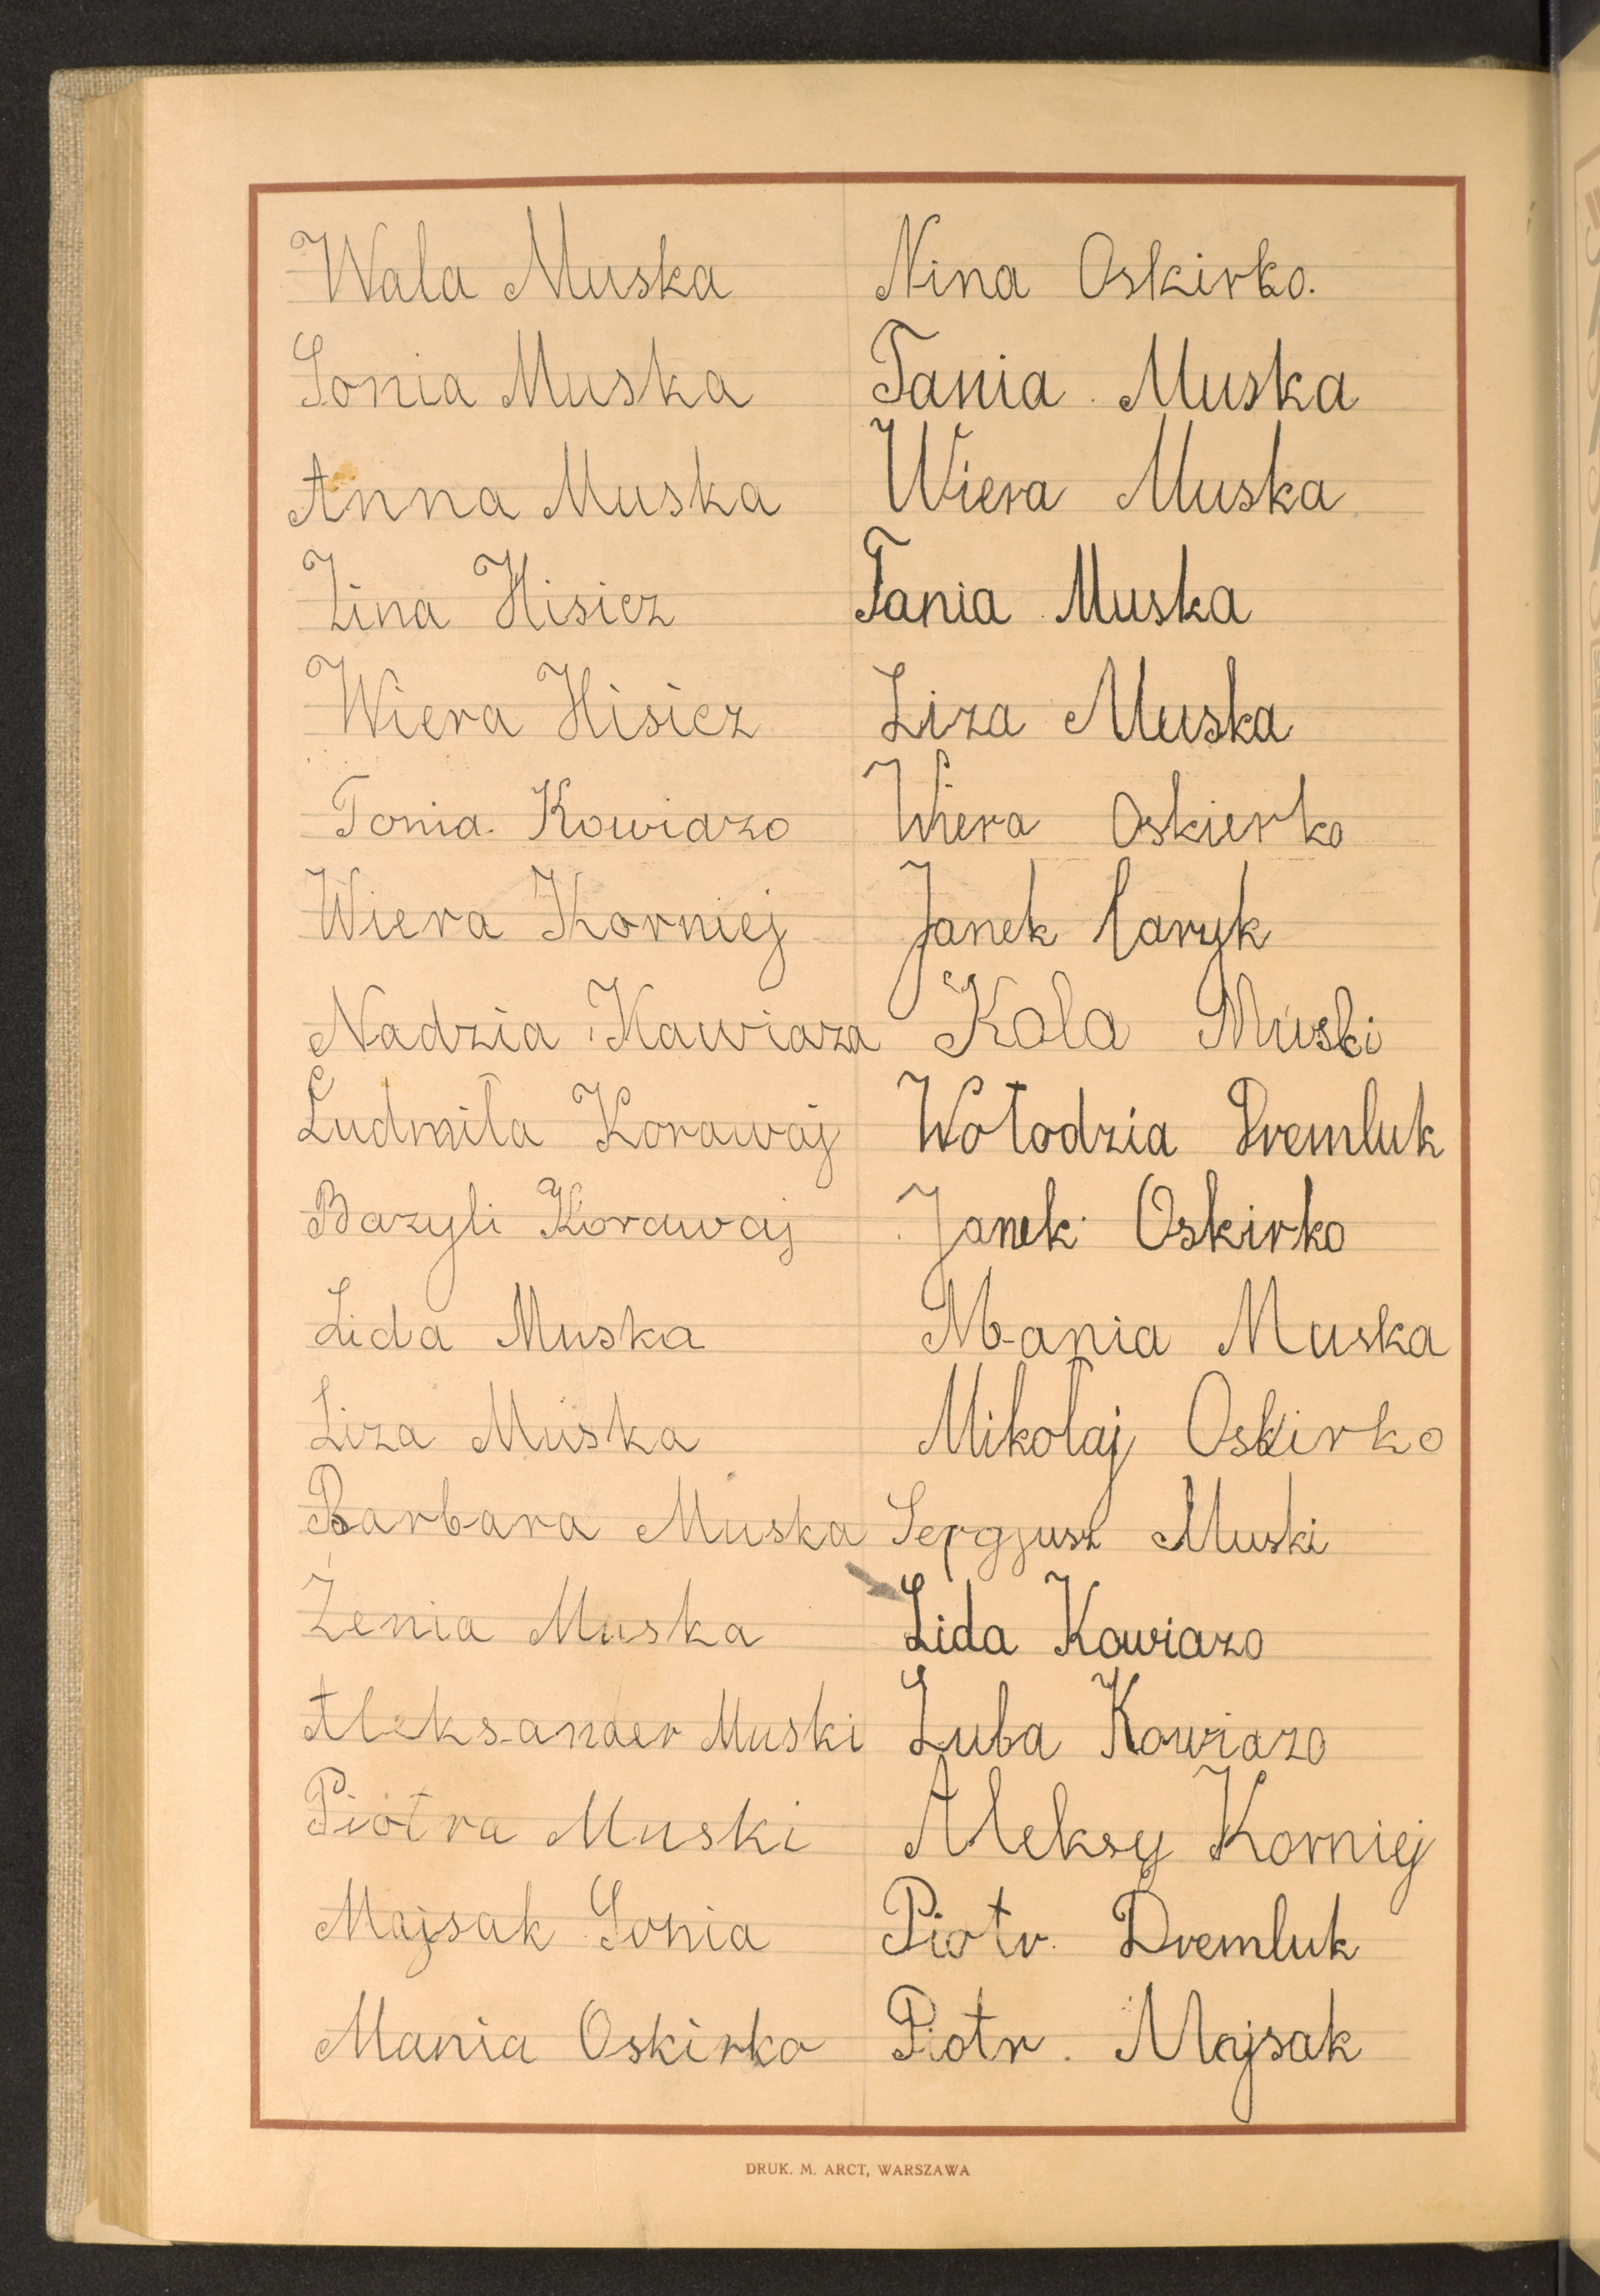 Wala Muska
Sonia Muska
Anna Muska
Zina Hisicz
Wiera Hisicz
Tonia Kowiazo
Wiera Korniej
Nadzia Kawiaza
Ludmiła Korawaj
Bazyli Korawaj
Lida Muska
Liza Muska
Barbara Muska
Żenia Muska
Aleksander Muski
Piotra Muski
Majsak Sonia
Mania Oskirko
Nina Oskirko.
Tania Muska
Wiera Muska
Tania Muska
Liza Muska
Wiera Oskierko
Janek Caryk
Kola Muski
Wołodzia Dremluk
Janek Oskirko
Mania Muska
Mikołaj Oskirko
Sergjusz Muski
Lida Kowiazo
Luba Kowiazo
Aleksy Korniej
Piotr Dremluk
Piotr Majsak
DRUK. M. ARCT, WARSZAWA